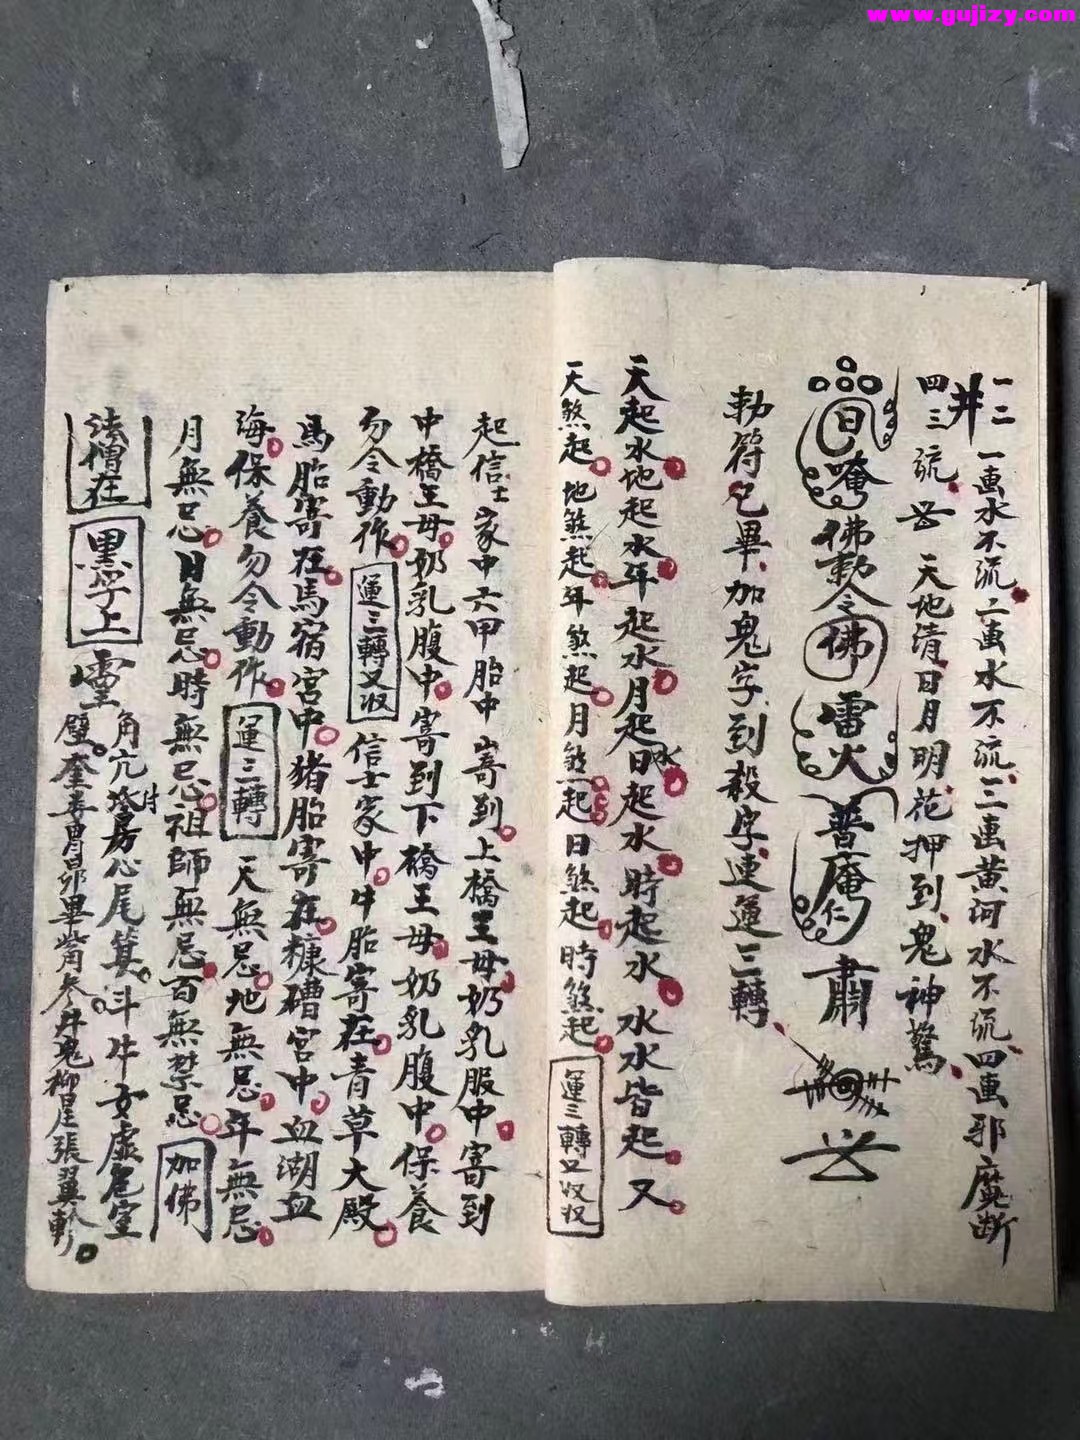 www.gujizy.com
一二
井 一画水不流二画水不流三画黄河水不流四画邪魔断
四三流 天地清日月明花押到鬼神驚
日唵佛勅令佛雷火普庵仁肅
勅符已畢加鬼字到殺字連運三轉
天起水地起水年起水月起水日起水時起水水水皆起又
天煞起地煞起年煞起月煞起日煞起時煞起 運三轉又収
起信士家中六甲胎中寄到上橋王母奶乳服中寄到
中橋王母奶乳腹中寄到下橋王母奶乳腹中保養
勿令動作 運三轉又収 信士家中牛胎寄在青草大殿
馬胎寄在馬宿宮中猪胎寄在糠槽宮中血湖血
海保養勿令動作 運三轉 天無忌地無忌年無忌
月無忌日無忌時無忌祖師無忌百無禁忌 加佛
法僧在 黑字上 角亢房心尾箕斗牛女虛危室
壁奎婁胃昴畢觜参井鬼柳星張翼軫